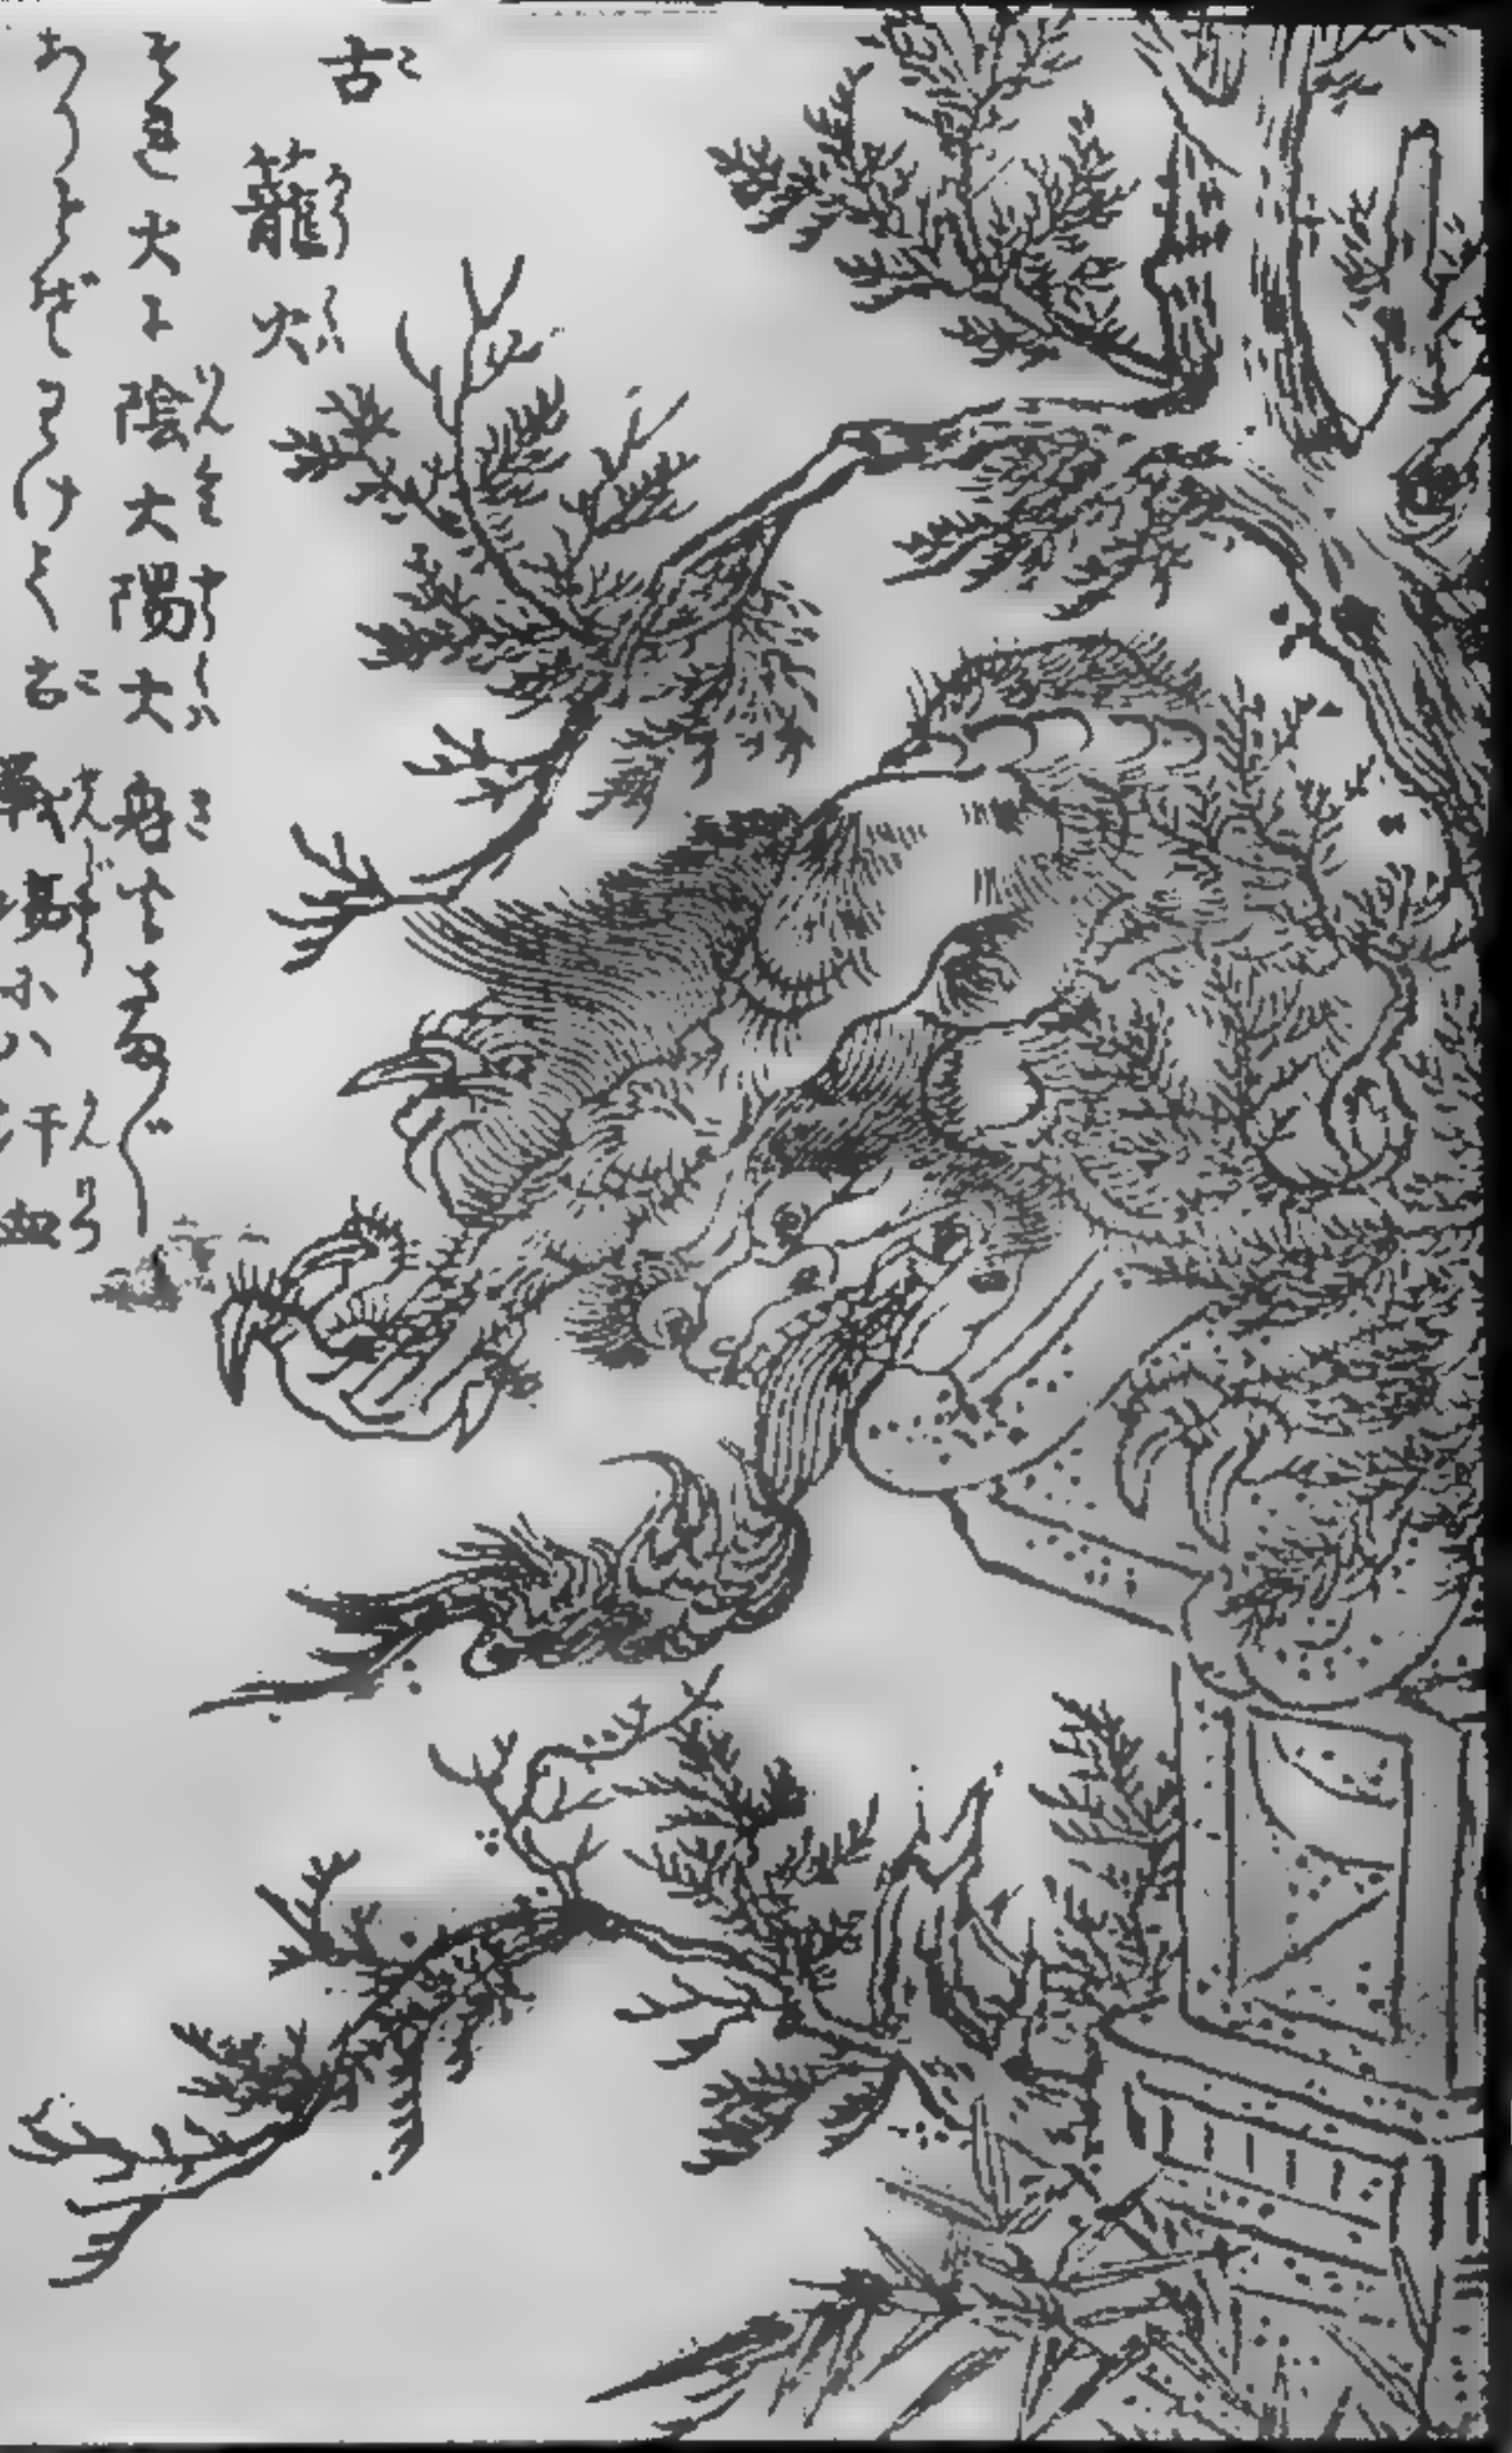 古籠火
それ火に陰火陽火鬼火さまざま
ありとぞわけて古戦場には汗血